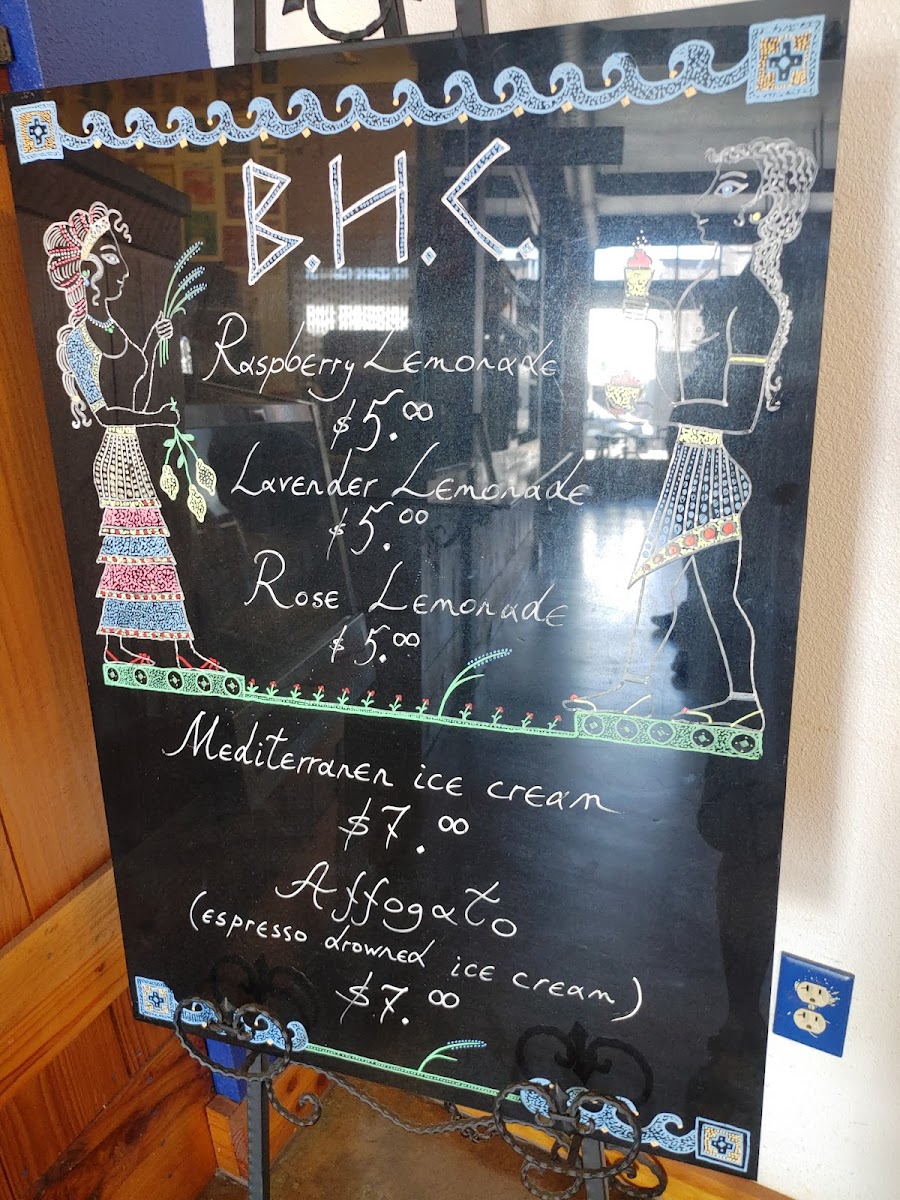 B.H.C.
Raspberry Lemonade
$5.00
Lavender Lemonade
$5.00
Rose Lemonade
$5.00
Mediterranen ice cream
$7.00
Affogato
(espresso drowned ice cream)
$7.00